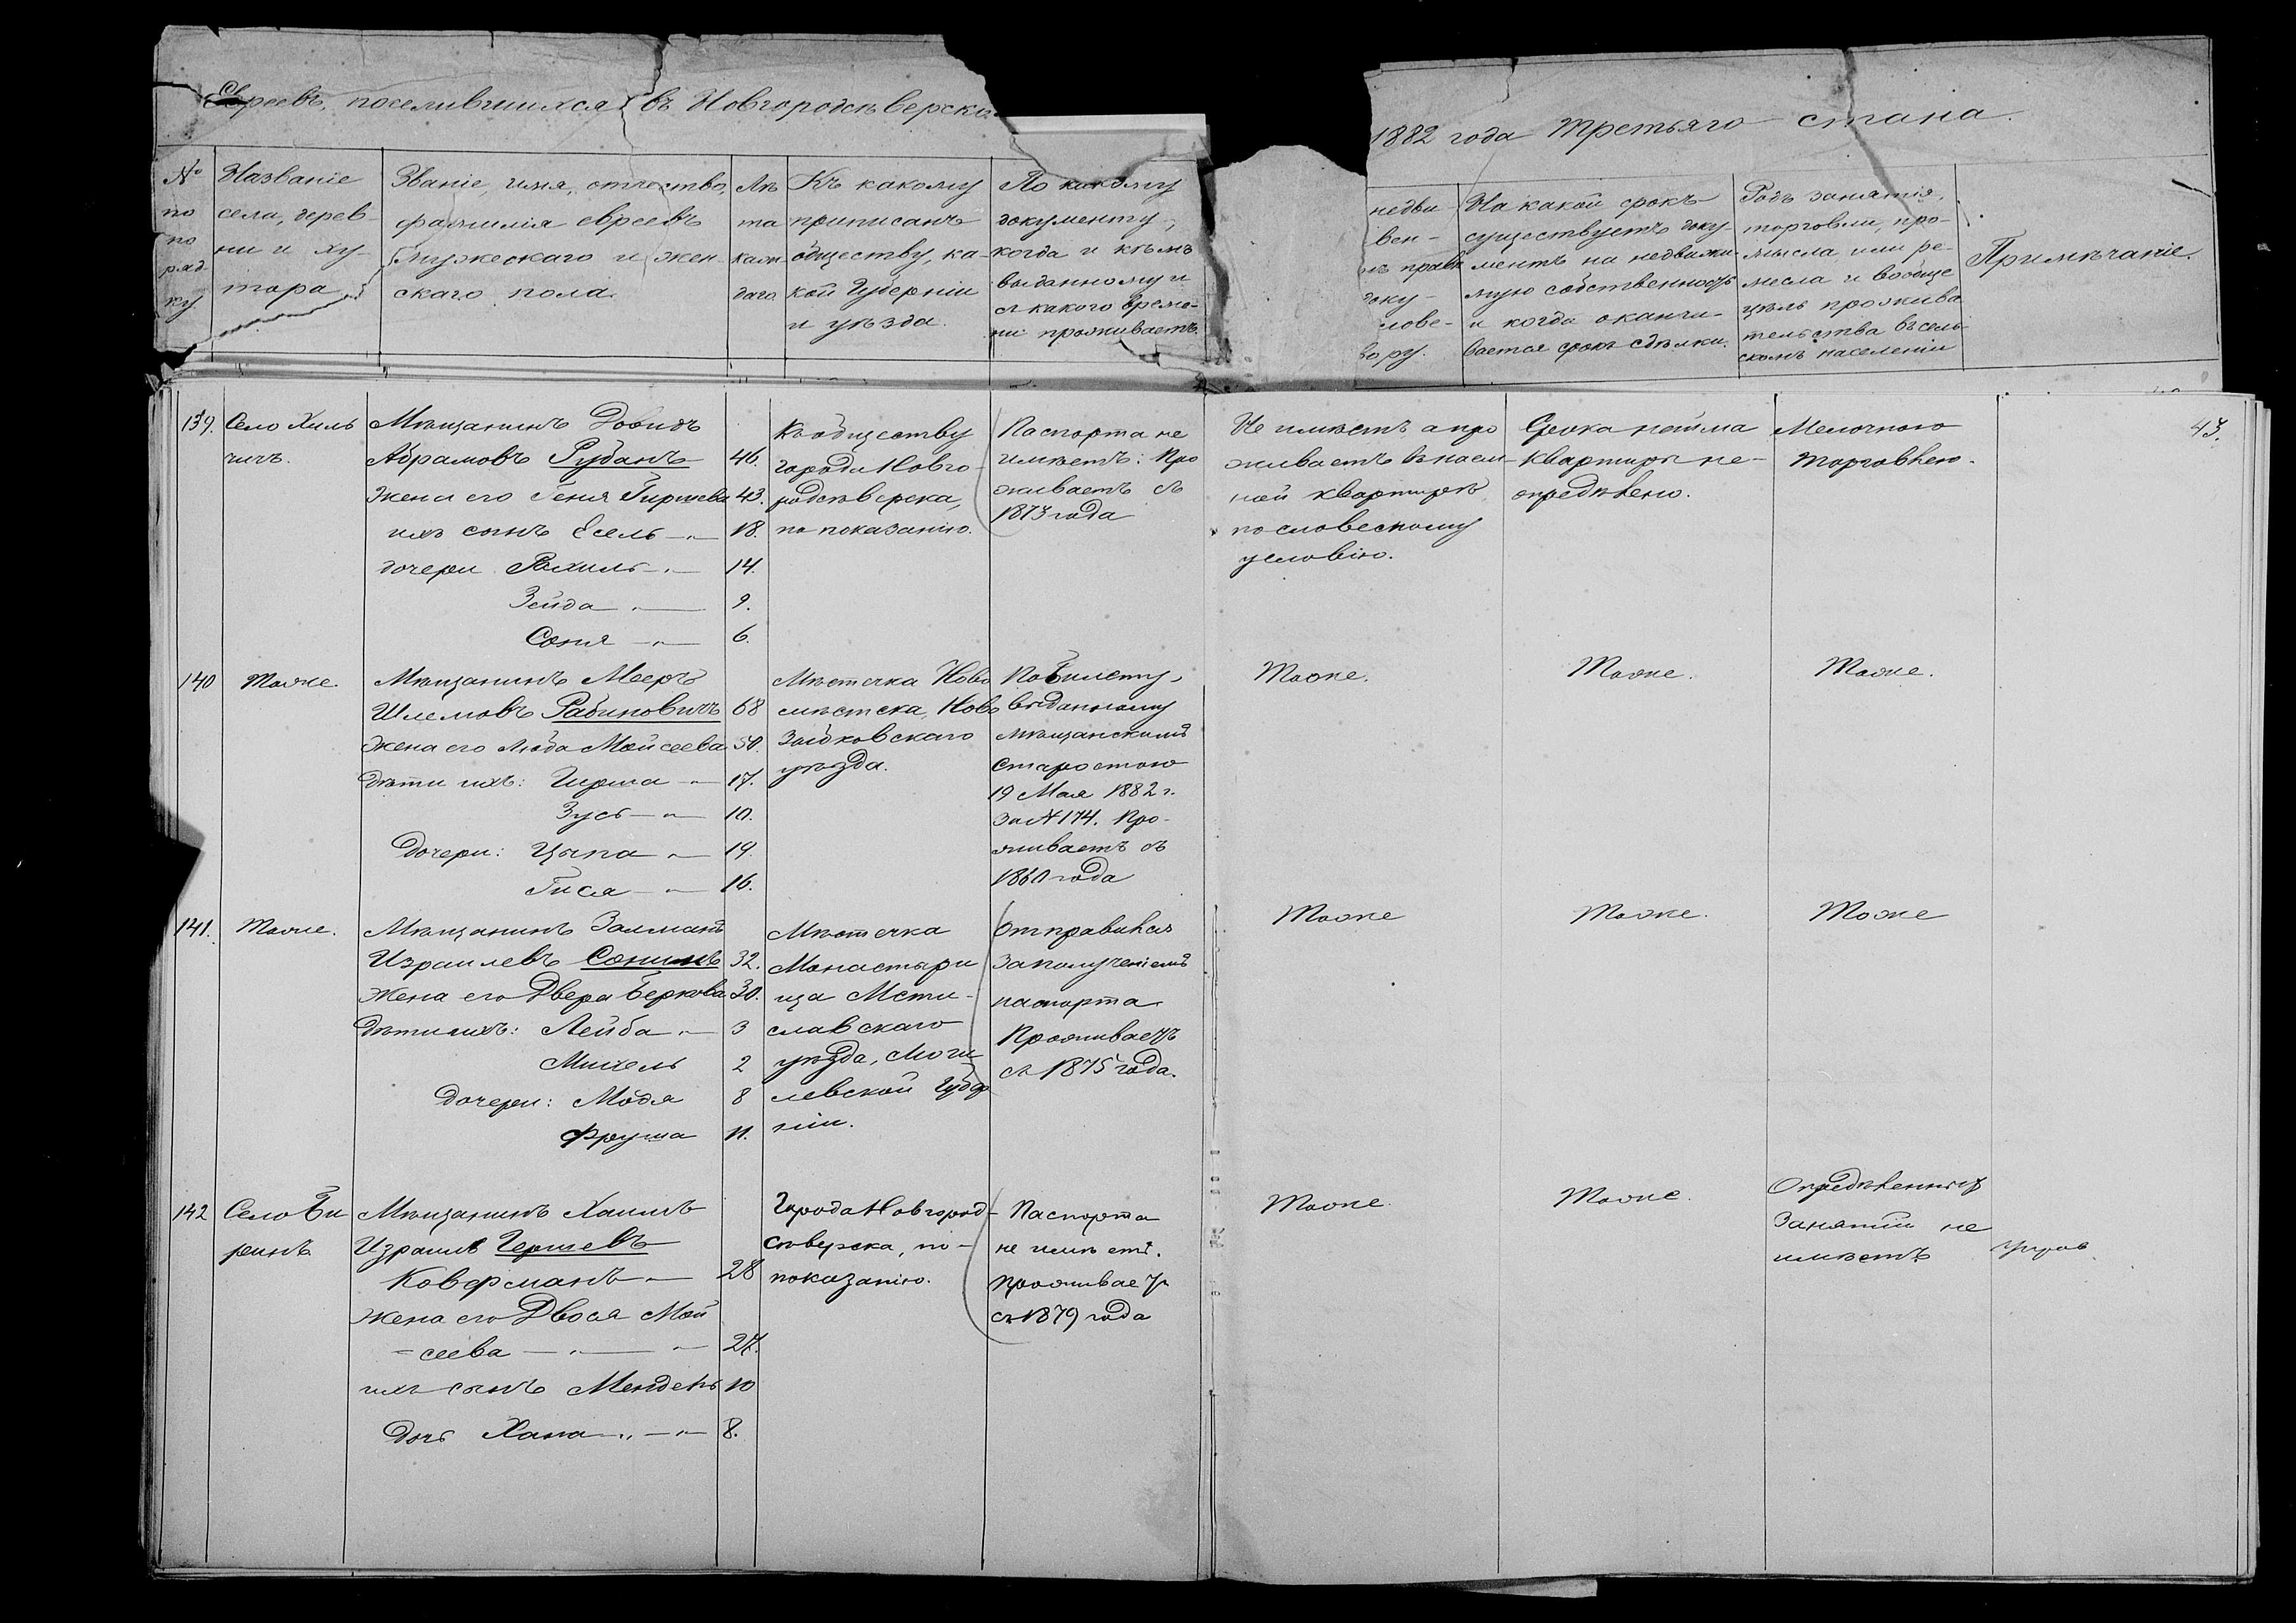 Евреевъ, поселившихся въ Новгородсѣверско
1882 года Третьяго стана.
№
по
по
ряд
ку
Названіе
села, дерев-
ни и ху-
тора
Званіе, имя, отчество,
фамилія евреевъ
мужескаго и жен-
скаго пола.
Лѣ
та
кажд
даго
Къ какому
приписанъ
обществу, ка-
кой Губерніи
и уѣзда.
По какому
документу,
когда и кѣмъ
выданному и
съ какого време-
ни проживаетъ.
недви-
вен-
права
доку-
слове-
вору.
На какой срокъ
существуетъ доку-
ментъ на недвижи
мую собственность
и когда оканчи-
вается срокъ сдѣлки.
Родъ занятія,
торговли, про-
мысла, или ре-
месла и вообще
цѣль прожива
тельства въ сель
скомъ населеніи
Примѣчаніе.
43.
139.
Село Хиль
чичъ.
Мѣщанинъ Довидъ
Абрамовъ Рубанъ 46.
Жена его Геня Гиршева 43.
ихъ сынъ Есель —„— 18.
дочери Рахиль —„— 14.
Зейда —„— 9.
Соня —„— 6.
Къ обществу
города Новго-
родсѣверска,
по показанію.
Паспорта не
имѣетъ: Про
живаетъ съ
1873 года
Не имѣетъ а про
живаетъ въ наем-
ной квартирѣ
по словесному
условію.
Срока найма
квартиры не-
опредѣлено.
Мелочною
торговлею.
140
Тоже.
Мѣщанинъ Мееръ
Шлемовъ Рабиновичъ 68
Жена его Люба Мойсеева 50.
Дѣти ихъ: Гирша —„— 17.
Зусь —„— 10.
Дочери: Цыпа —„— 19.
Гися —„— 16.
Мѣстечка Ново
мѣстска, Ново
Зыбковскаго
уѣзда.
По билету,
выданному
мѣщанскимъ
Старостою
19 Мая 1882 г.
За № 174. Про-
живаетъ съ
1860 года
Тоже.
Тоже.
Тоже.
141.
Тоже.
Мѣщанинъ Залманъ
Израилевъ Сонинъ 32.
Жена его Двера Беркова 30.
Дѣти ихъ: Лейба —„— 3
Михель 2
Дочери: Модя 8
Фруша 11.
Мѣстечка
Монастыри
ща Мсти-
славскаго
уѣзда, Моги
левской Губер
ніи.
Отправился
за полученіемъ
паспорта
Проживаетъ
съ 1875 года.
Тоже
Тоже.
Тоже
142
Село Би
ринъ
Мѣщанинъ Хаимъ
Израилъ Гершевъ
Коверманъ —„— 28
Жена его Двося Мой
=сеева —„— 27.
ихъ сынъ Мендель 10
Дочь Хана —„— 8.
Города Новгород-
Сѣверска, по-
показанію.
Паспорта
не имѣетъ.
Проживаетъ
съ 1879 года
Тоже.
Тоже.
Опредѣленныхъ
Занятій не
имѣетъ